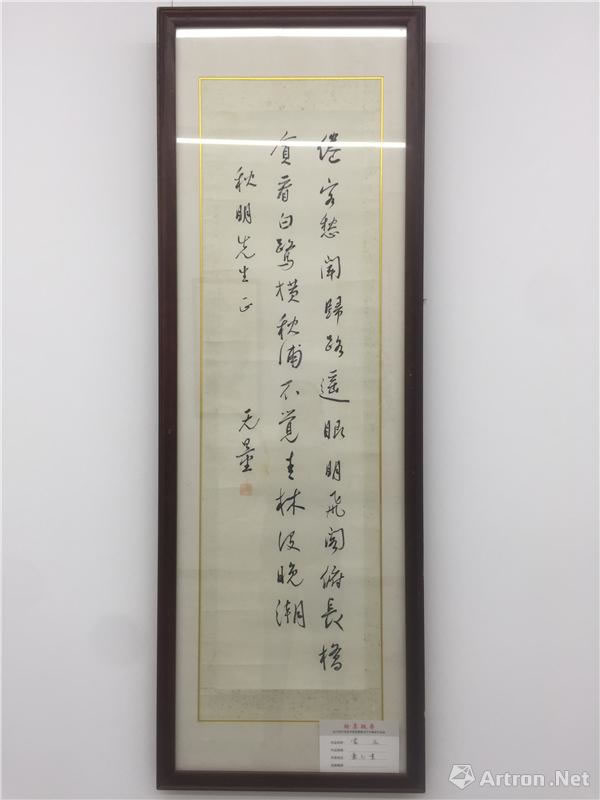 倦客愁聞歸路遥眼明飛閣俯長橋
貪看白鷺横秋浦不覺青林没晚潮
秋明先生正
无量
Artron.Net